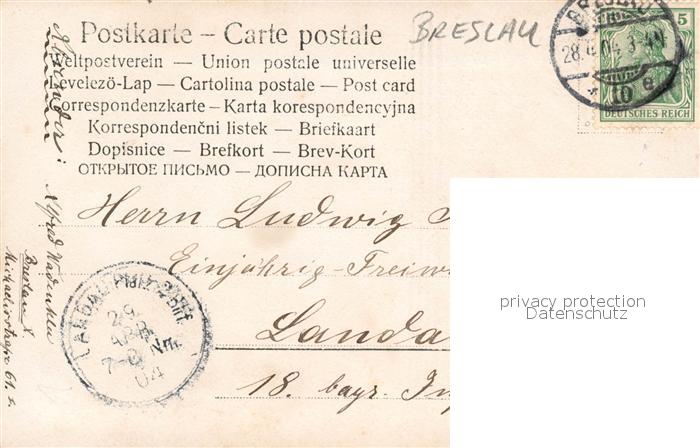 Postkarte – Carte postale
BRESLAU
Weltpostverein — Union postale universelle
Levelező-Lap — Cartolina postale — Post card
Correspondenzkarte – Karta korespondencyjna
Korrespondenční listek — Briefkaart
Dopisnice — Brefkort — Brev-Kort
ОТКРЫТОЕ ПИСЬМО — ДОПИСНА КАРТА
BRESLAU
28.4.04. 3-4N
* 10 g
5
DEUTSCHES REICH
Herrn Ludwig
Einjährig-Freiw
Landa
18. bayr. Inf
LANDAU PFALZ
29
APR
7-8 Nm.
04
Absender:
Alfred
Breslau X.
Michaelisstraße 61.
privacy protection
Datenschutz